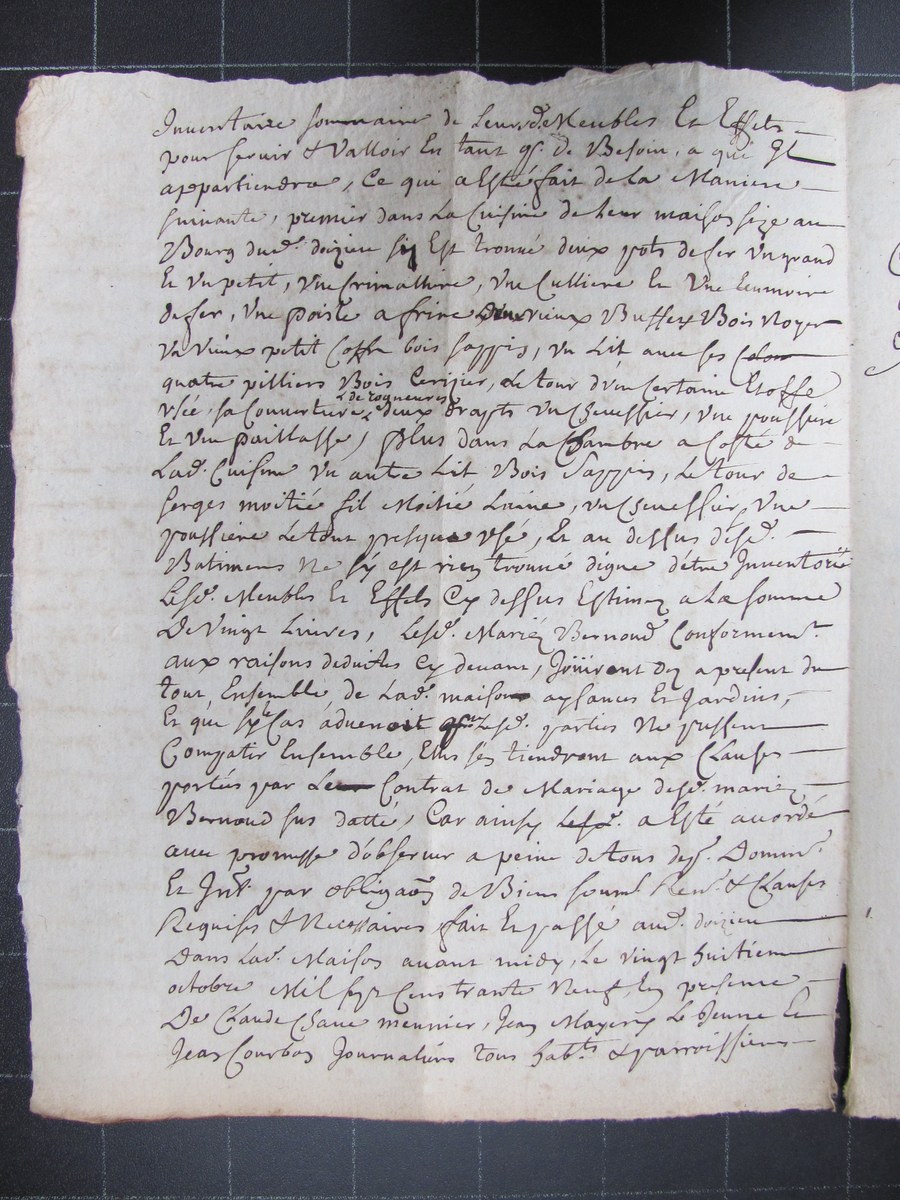 Inventaire sommaire de leursd. Meubles Et Effets
pour servir & valloir En tant q. de Besoin, a qui Il
appartiendra, Ce qui a Esté fait de la Maniere
suivante, premier dans La Cuisine de leur maison size au
Bourg dud. doizieu sy Est trouvé deux pots de fer Un grand
Et Un petit, Une Crimalliere, Une Culliere Et Une Ecumoire
de fer, Une poisle a frire vieux Buffet Bois Noyer
Un Vieux petit Coffre bois sappin, Un Lit avec ses Colon
quatre pilliers Bois Cerizier, Le tour d'un Certaine Etoffe
Usée, sa Couverture de rogneures deux draps Un Chevessier, Une poussiere
Et Une paillasse, plus dans La Chambre a Costé de
Lad. Cuisine Un autre Lit Bois Sappin, Le tour de
serges moitié fil Moitié Laine, Un Chevessier, Une
poussiere Le tout presque Usé, Et au dessus desd.
Batiments Ne sy est rien trouvé digne d'être Inventorié
Lesd. Meubles Et Effets Cy dessus Estimez a La somme
De Vingt Livres, Lesd. Mariez Bernoud Conformemt.
aux raisons deduites Cy devant, Joüiront dez apresent du
tout Ensemble de Lad. maison aysances Et Jardins,
Et que sy Cas advenoit que Lesd. parties Ne pussent
Compatir Ensemble, Elles s'en tiendront aux Clauses
portées par Le Contrat de Mariage desd. mariez
Bernoud sus datté, Car ainsy a Esté accordé
avec promesse d'observer a peine de tous dep. Domm.
Et Int. par obligaõn de Biens soum. Ren. & Clauses
Requises & Necessaires, fait Et passé aud. doizieu
Dans Lad. Maison avant midy, Le Vingt huitieme
octobre Mil sept Cens trante Neuf, En presence
De Claude Chave meunier, Jean Mayery Le Jeune Et
Jean Courbon Journaliers tous habts. & parroissiens